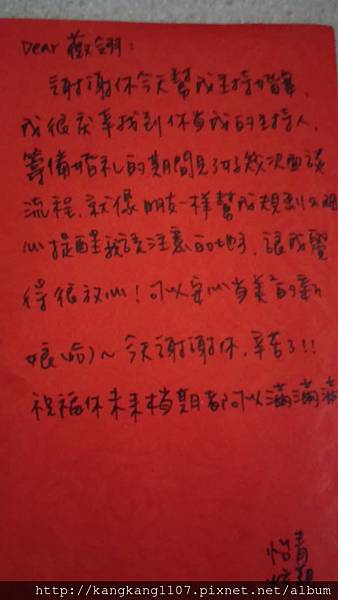 Dear 歡翎：
謝謝你今天幫我主持婚宴，
我很慶幸找到你當我的主持人，
籌備婚禮的期間見了好幾次面談
流程，就像朋友一樣幫我規劃
心提醒我該注意的地方，讓我覺
得很放心！可以安心當美美的新
娘(笑)～今天謝謝你，辛苦了!!
祝福你未來檔期都可以滿滿滿
怡青
http://kangkang1107.pixnet.net/album